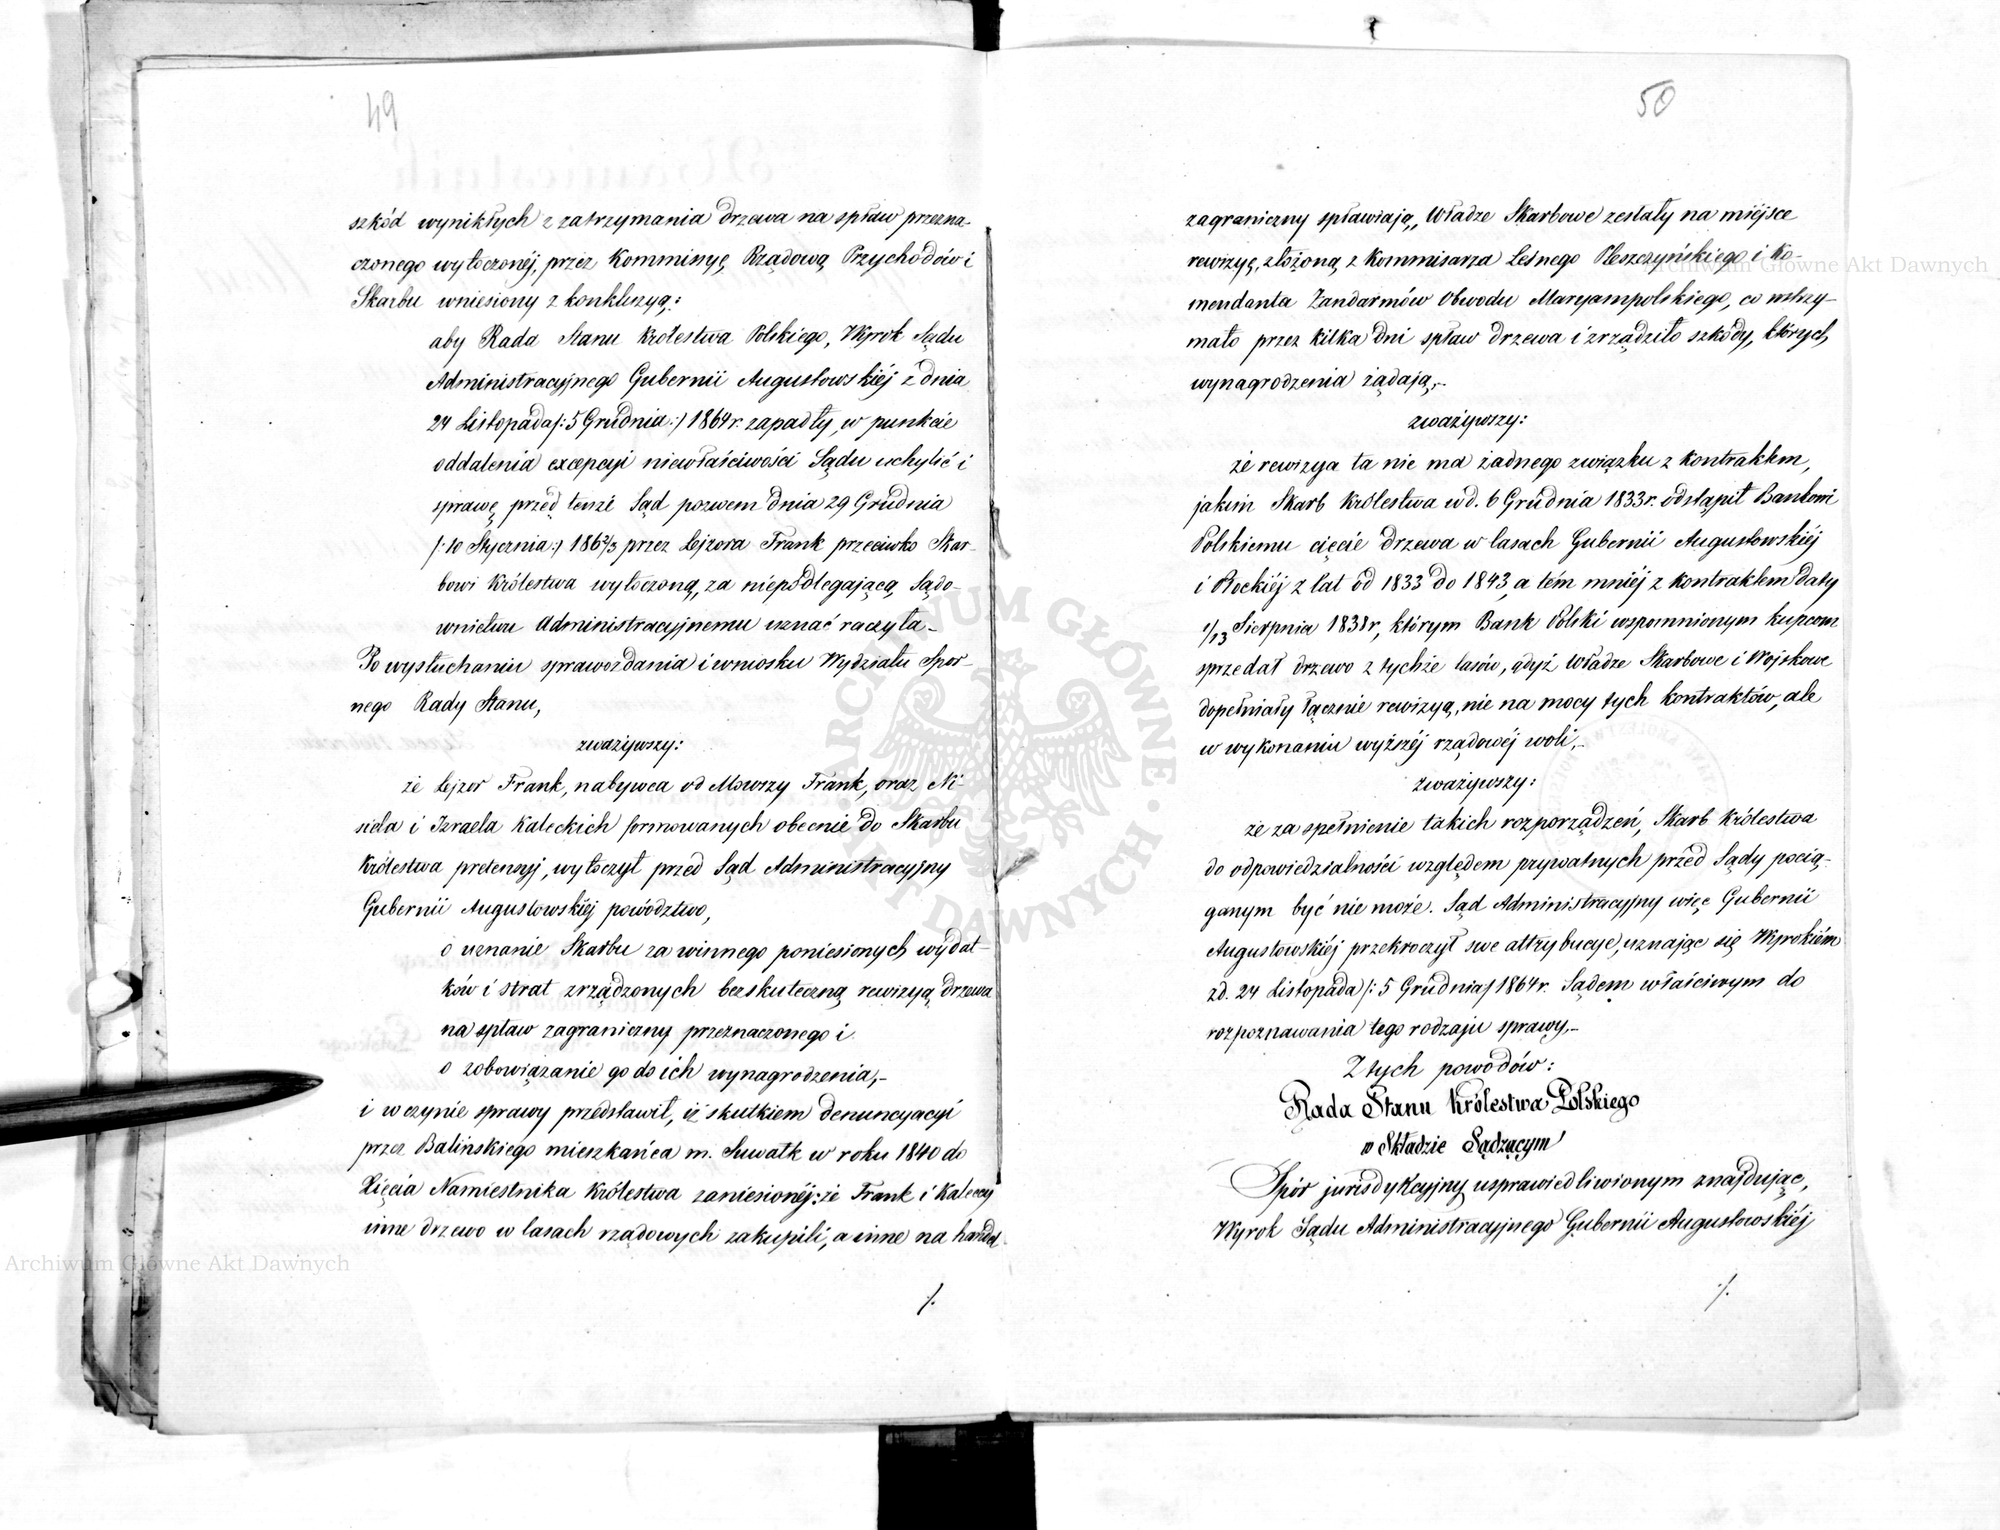 49
szkód wynikłych z zatrzymania drzewa na spław przezna-
czonego wytoczonéj, przez Kommissyę Rządową Przychodów i
Skarbu wniesiony z konkluzyą:
aby Rada Stanu Królestwa Polskiego, Wyrok Sądu
Administracyjnego Gubernii Augustowskiéj z dnia
24 Listopada /:5 Grudnia:/ 1864 r. zapadły, w punkcie
oddalenia excepcyi niewłaściwości Sądu uchylić i
sprawę przed tenże Sąd pozwem dnia 29 Grudnia
/:10 Stycznia:/ 1862/3 przez Lejzora Frank przeciwko Skar-
bowi Królestwa wytoczoną, za niepodlegającą Sądo-
wnictwu Administracyjnemu uznać raczyła_
Po wysłuchaniu sprawozdania i wniosku Wydziału Spor-
nego Rady Stanu,
zważywszy:
że Lejzor Frank, nabywca od Mowszy Frank, oraz Ni-
siela i Izraela Kaleckich formowanych obecnie do Skarbu
Królestwa pretensyj, wytoczył przed Sąd Administracyjny
Gubernii Augustowskiéj powództwo,
o uznanie Skarbu za winnego poniesionych wydat-
ków i strat zrządzonych bezskuteczną rewizyą drzewa
na spław zagraniczny przeznaczonego i
o zobowiązanie go do ich wynagrodzenia,_
i w czynie sprawy przedstawił, iż skutkiem denuncyacyi
przez Balińskiego mieszkańca m. Suwałk w roku 1840 do
Xięcia Namiestnika Królestwa zaniesionéj: że Frank i Kaleccy
inne drzewo w lasach rządowych zakupili, a inne na handel
/.
50
zagraniczny spławiają, Władze Skarbowe zesłały na miejsce
rewizyę, złożoną z Kommisarza Leśnego Pleszczyńskiego i Ko-
mendanta Żandarmów Obwodu Maryampolskiego, co wstrzy-
mało przez kilka dni spław drzewa i zrządziło szkody, których
wynagrodzenia żądają,_
zważywszy:
że rewizya ta nie ma żadnego związku z kontraktem,
jakim Skarb Królestwa w d. 6 Grudnia 1833 r. odstąpił Bankowi
Polskiemu cięcie drzewa w lasach Gubernii Augustowskiéj
i Płockiéj z lat od 1833 do 1843, a tém mniéj z kontraktem daty
1/13 Sierpnia 1838 r, którym Bank Polski wspomnionym kupcom
sprzedał drzewo z tychże lasów, gdyż Władze Skarbowe i Wojskowe
dopełniały łącznie rewizyą, nie na mocy tych kontraktów, ale
w wykonaniu wyższéj rządowéj woli,_
zważywszy:
że za spełnienie takich rozporządzeń, Skarb Królestwa
do odpowiedzialności względem prywatnych przed Sądy pocią-
ganym być nie może. Sąd Administracyjny więc Gubernii
Augustowskiéj przekroczył swe attrybucye, uznając się Wyrokiém
z d. 24 Listopada /:5 Grudnia/ 1864 r. Sądem właściwym do
rozpoznawania tego rodzaju sprawy,_
Z tych powodów:
Rada Stanu Królestwa Polskiego
w Składzie Sądzącym
Spór jurisdykcyjny usprawiedliwionym znajdując,
Wyrok Sądu Administracyjnego Gubernii Augustowskiéj
/.
ARCHIWUM GŁÓWNE AKT DAWNYCH
Archiwum Główne Akt Dawnych
Archiwum Główne Akt Dawnych